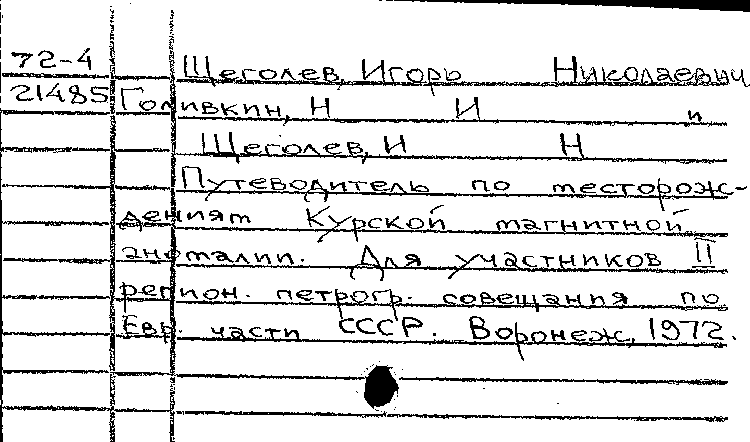 72-4 Щеголев, Игорь Николаевич
21485 Голивкин, Н И и
Щеголев, И Н
Путеводитель по месторож-
дениям Курской магнитной
аномалии. Для участников II
регион. петрогр. совещания по
Евр. части СССР. Воронеж, 1972.